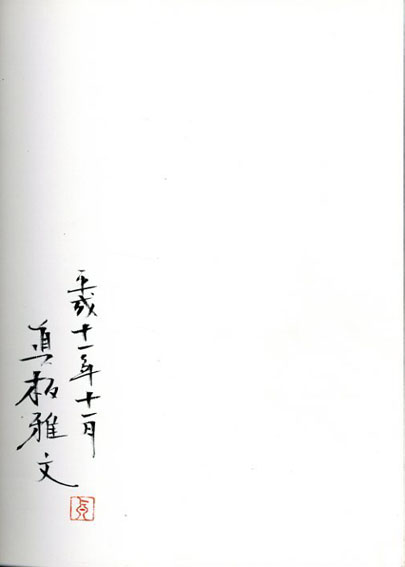 平成十一年十一月
真板雅文